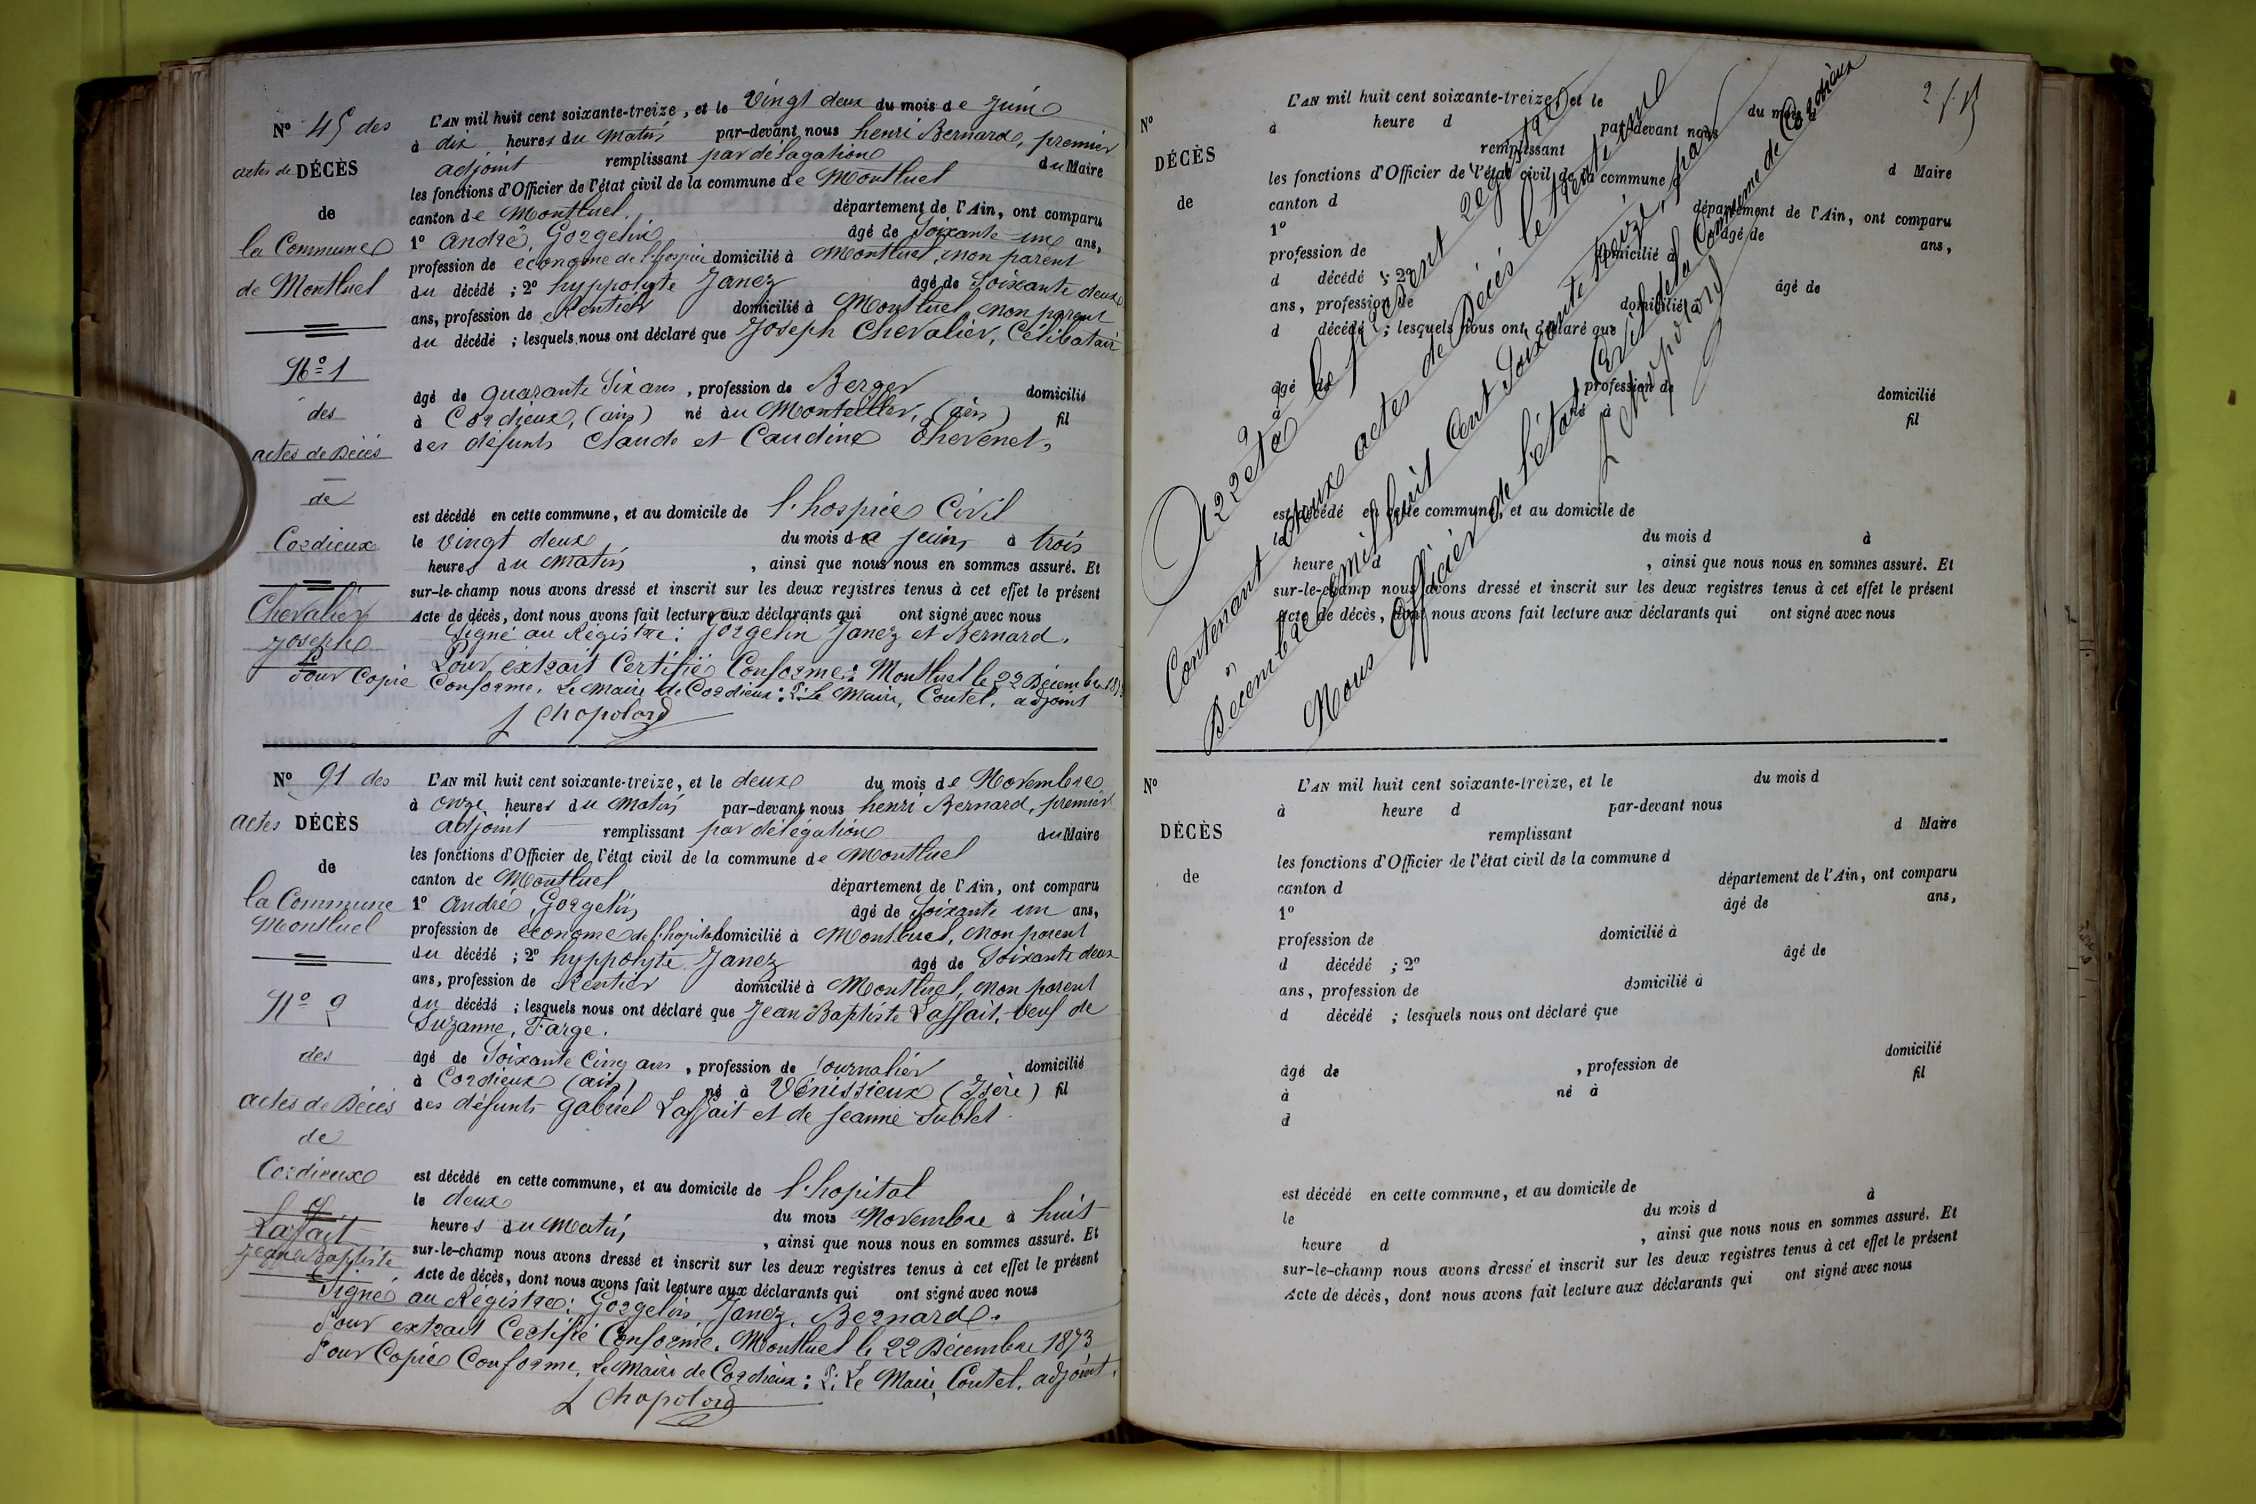 L'AN mil huit cent soixante-treize, et le Vingt deux du mois de Juin
No 45 des
à dix heures du Matin par-devant nous henri Bernard, premier
actes de DÉCÈS
adjoint remplissant par délagation du Maire
les fonctions d'Officier de l'état civil de la commune de Montluel
de
canton de Montluel. département de l'Ain, ont comparu
la Commune
1o André, Gorgelin âgé de Soixante un ans,
profession de économe de l'hospice domicilié à Montluel, non parent
de Montluel
du décédé ; 2o hyppolyte Janez âgé de Soixante deux
ans, profession de Rentier domicilié à Montluel non parent
du décédé ; lesquels nous ont déclaré que Joseph Chevalier, Célibatair
No 1
âgé de quarante Six ans, profession de Berger domicilié
des
à Cordieux, (ain) né au Montellier, (ain) fil
des défunts Claude et Caudine Thevenet,
actes de Décés
de
est décédé en cette commune, et au domicile de l'hospice Civil
Cordieux
le vingt deux du mois de juin à trois
heures du matin, ainsi que nous nous en sommes assuré. Et
sur-le-champ nous avons dressé et inscrit sur les deux registres tenus à cet effet le présent
Chevalier
Acte de décès, dont nous avons fait lecture aux déclarants qui ont signé avec nous
Joseph
Signé au Régistre: Gorgelin Janez et Bernard.
Pour extrait Certifié Conforme: Montluel le 22 Décembre 1873
Pour Copie Conforme. Le Maire de Cordieux: P. Le Maire, Coutel, adjoint
L Chapolard
No 91 des
L'AN mil huit cent soixante-treize, et le deux du mois de Novembre
à onze heures du Matin par-devant nous henri Bernard, premier
actes DÉCÈS
adjoint remplissant par délégation du Maire
les fonctions d'Officier de l'état civil de la commune de Montluel
de
canton de Montluel département de l'Ain, ont comparu
la Commune
1o André, Gorgelin âgé de Soixante un ans,
Montluel
profession de économe de l'hopital domicilié à Montluel, non parent
du décédé ; 2o hyppolyte Janez âgé de Soixante deux
ans, profession de Rentier domicilié à Montluel, non parent
No 9
du décédé ; lesquels nous ont déclaré que Jean Baptiste Laffait, veuf de
Suzanne, Farge.
des
âgé de Soixante Cinq ans, profession de Journalier domicilié
à Cordieux (ain) né à Vénissieux (Isère) fil
actes de Décés
des défunts gabriel Laffait et de Jeanne Sublet
de
Cordieux
est décédé en cette commune, et au domicile de l'hopital
le deux du mois Novembre à huit
Laffait
heures du Matin, ainsi que nous nous en sommes assuré. Et
Jean Baptiste
sur-le-champ nous avons dressé et inscrit sur les deux registres tenus à cet effet le présent
Acte de décès, dont nous avons fait lecture aux déclarants qui ont signé avec nous
Signé au Régistre: Gorgelin, Janez, Bernard.
Pour extrait Certifié Conforme. Montluel le 22 Décembre 1873
Pour Copie Conforme, Le Maire de Cordieux: P. Le Maire, Coutel, adjoint.
L Chapolard
L'AN mil huit cent soixante-treize, et le du mois d
No
à heure d par-devant nous
DÉCÈS
remplissant d Maire
les fonctions d'Officier de l'état civil de la commune d
de
canton d département de l'Ain, ont comparu
1o âgé de ans,
profession de domicilié à
d décédé ; 2o âgé de
ans, profession de domicilié à
d décédé ; lesquels nous ont déclaré que
âgé de profession de domicilié
à né à fil
est décédé en cette commune, et au domicile de
le du mois d à
heure d , ainsi que nous nous en sommes assuré. Et
sur-le-champ nous avons dressé et inscrit sur les deux registres tenus à cet effet le présent
Acte de décès, dont nous avons fait lecture aux déclarants qui ont signé avec nous
Arrêté le présent registre
Contenant neuf actes de Décés le trente un
Décembre mil huit Cent Soixante treize, par
Nous Officier de l'état Civil de la Commune de Cordieux
L Chapolard
No
L'AN mil huit cent soixante-treize, et le du mois d
à heure d par-devant nous
DÉCÈS
remplissant d Maire
les fonctions d'Officier de l'état civil de la commune d
de
canton d département de l'Ain, ont comparu
1o âgé de ans,
profession de domicilié à
d décédé ; 2o âgé de
ans, profession de domicilié à
d décédé ; lesquels nous ont déclaré que
âgé de , profession de domicilié
à né à fil
d
est décédé en cette commune, et au domicile de
le du mois d à
heure d , ainsi que nous nous en sommes assuré. Et
sur-le-champ nous avons dressé et inscrit sur les deux registres tenus à cet effet le présent
Acte de décès, dont nous avons fait lecture aux déclarants qui ont signé avec nous